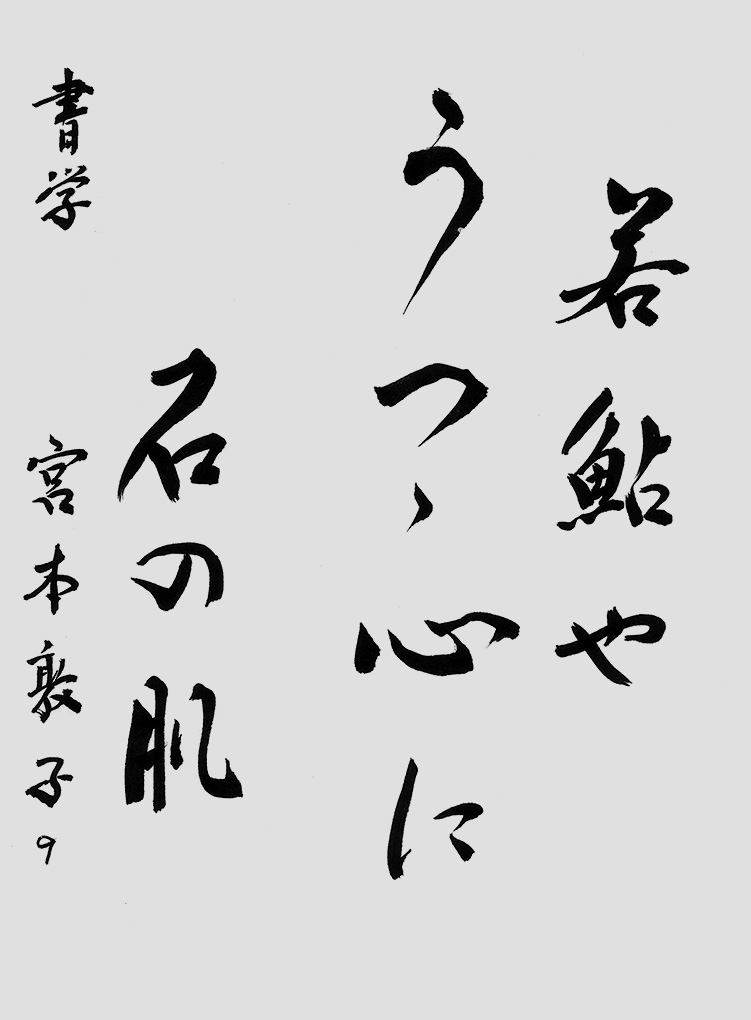 若鮎や
うつゝ心に
石の肌
書学 宮本敦子 9